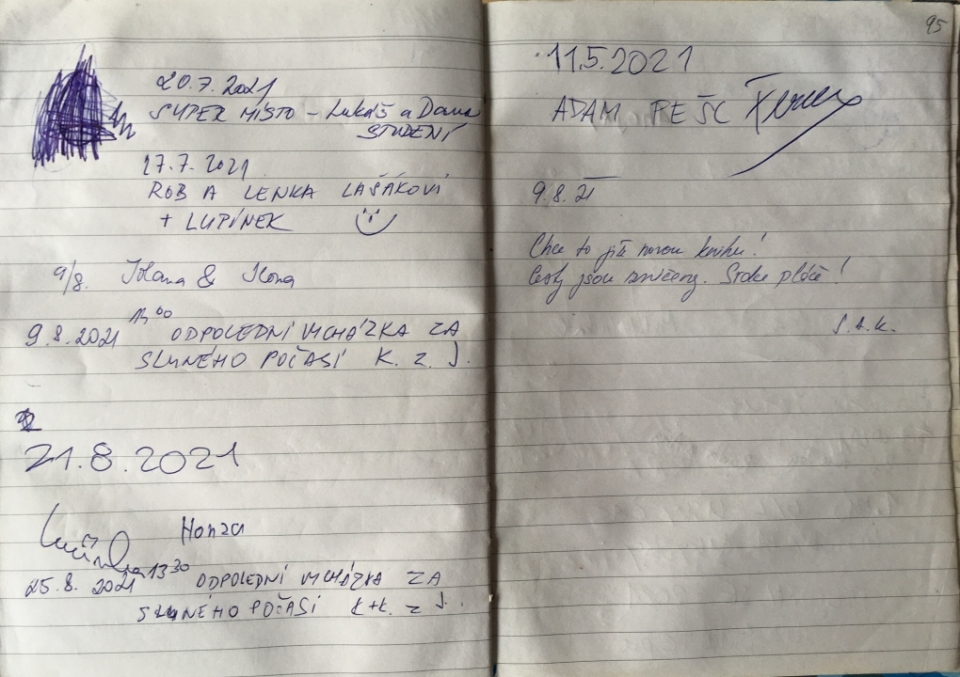 20.7.2021
SUPER MÍSTO – Lukáš a Dana
STUDENÍ
17.7.2021
ROB A LENKA LAŠÁKOVI
+ LUPÍNEK
9/8. Ilona
9.8.2021 ODPOLEDNÍ VYCHÁZKA ZA
SLUNÉHO POČASÍ K. z J.
21.8.2021
Honza
25.8.2021 13 30 ODPOLEDNÍ VYCHÁZKA ZA
SLUNÉHO POČASÍ K+K. z J.
95
11.5.2021
ADAM PEŠC
9.8.21
Chce to již novou knihu!
Cesty jsou zničeny. Srdce pláče!